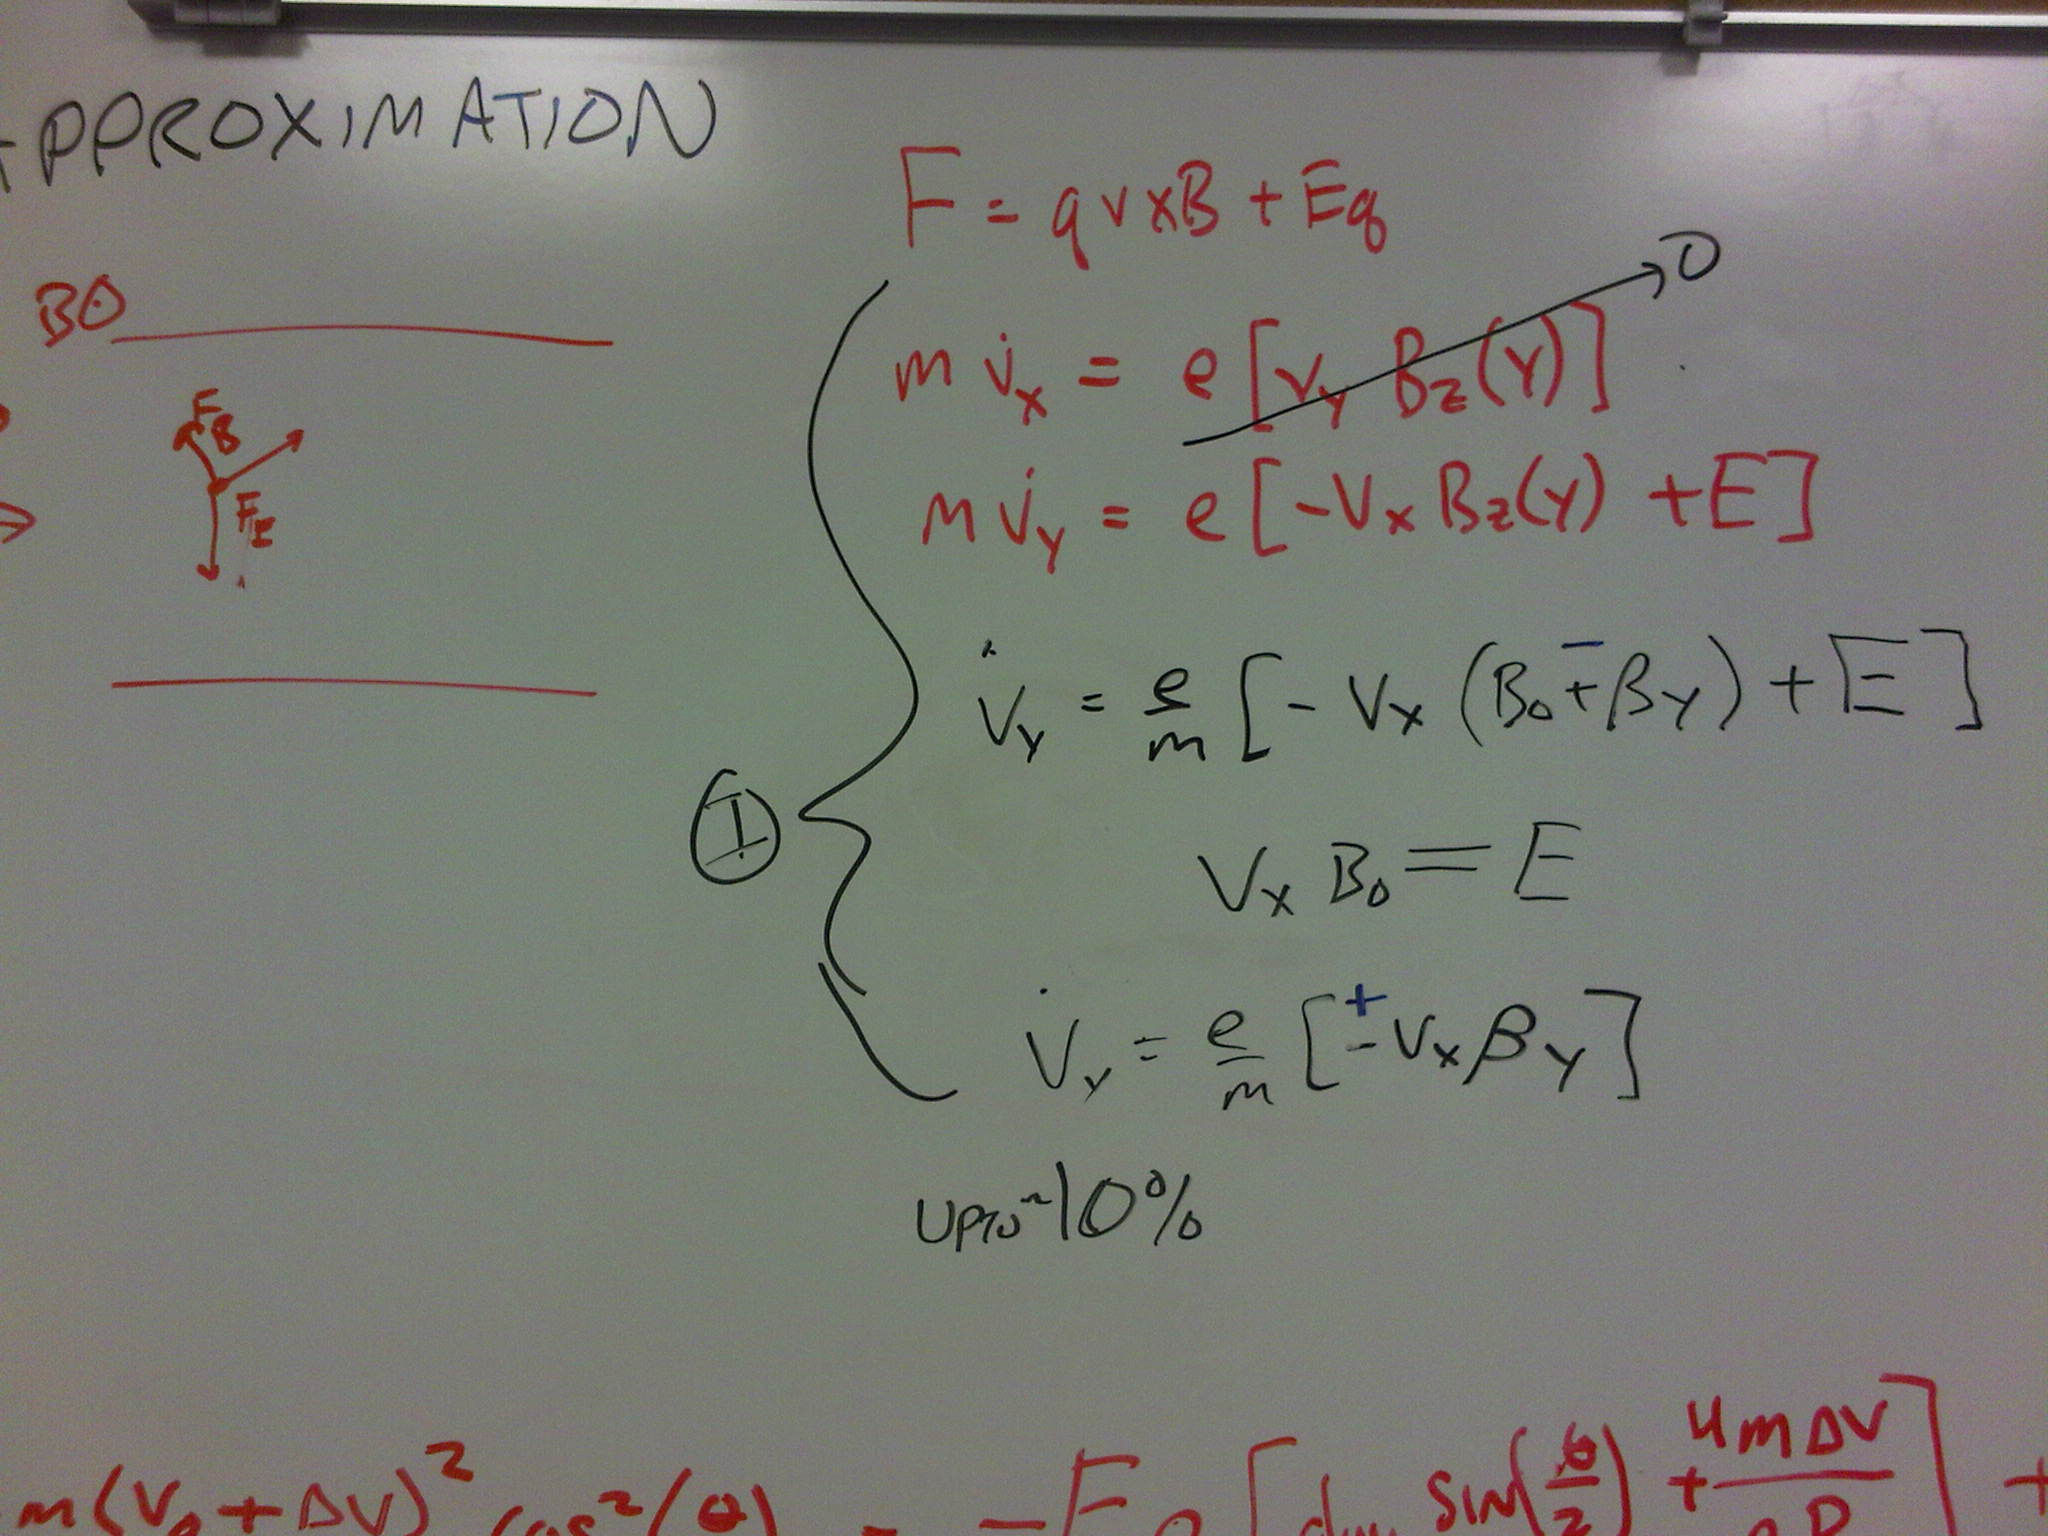 APPROXIMATION
F = qv×B + Eq
B⊙
m v̇x = e[vy Bz(y)] → 0
FB
FE
m v̇y = e[-Vx Bz(y) + E]
V̇y = e/m [- Vx (B0 ∓ βy) + E]
I
Vx B0 = E
V̇y = e/m [+ -Vx βy]
UPTO ~10%
m(V0 + ΔV)² cos²(θ) - -E [ sin(θ/2) + 4mΔV ] +